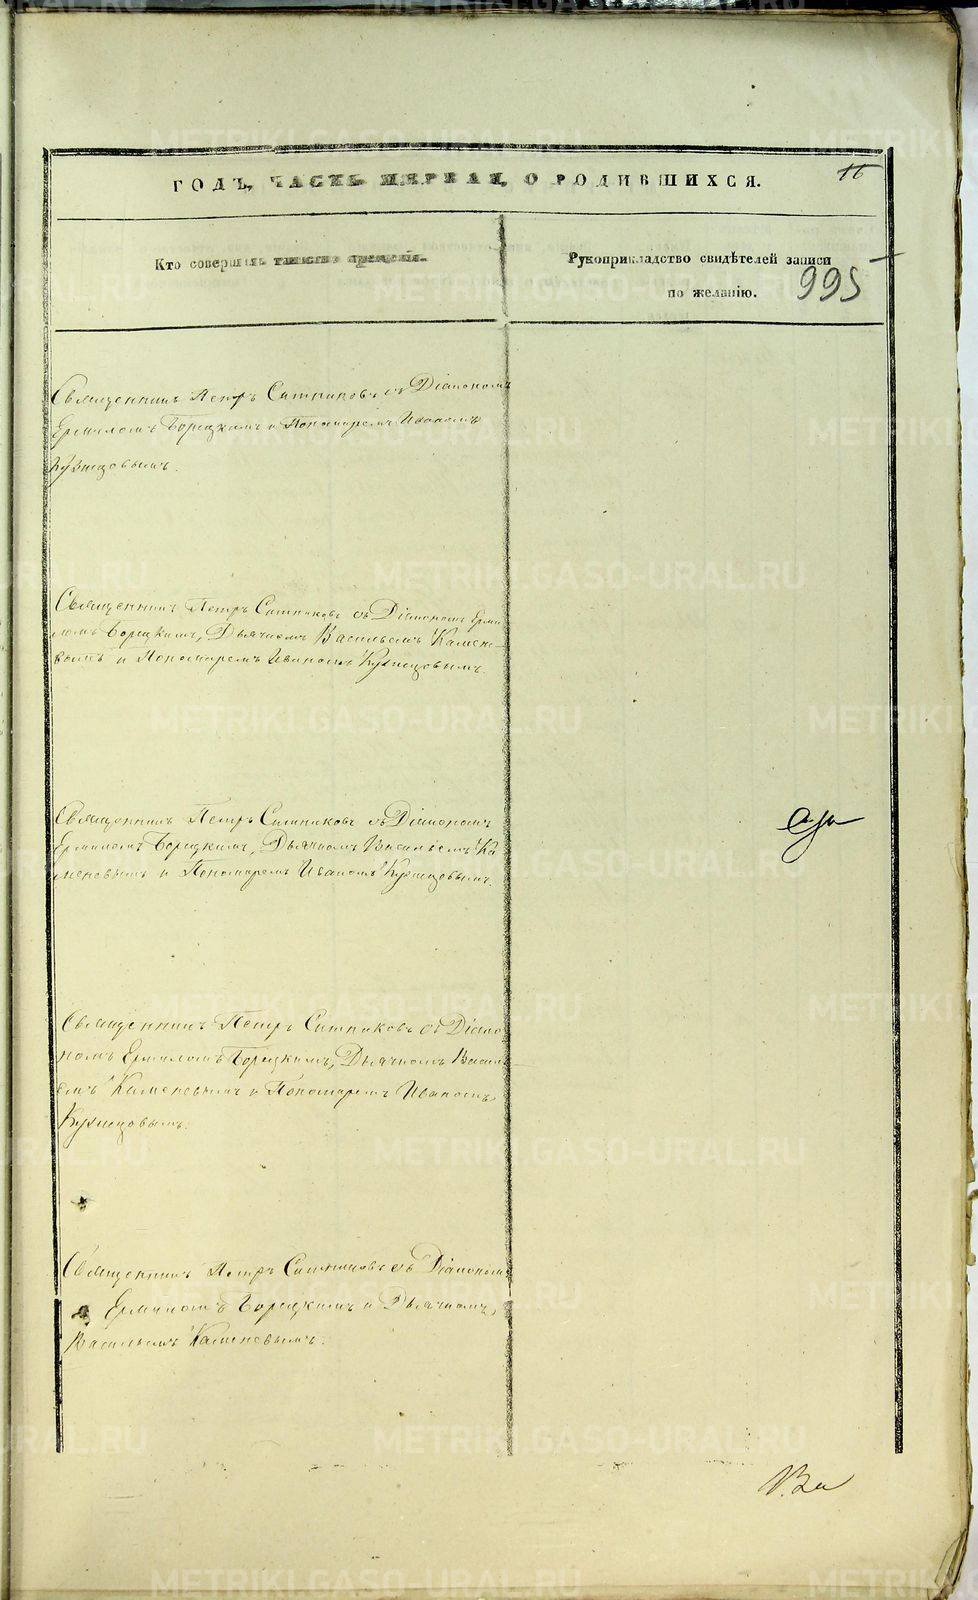 ГОДЪ, ЧАСТЬ ПЕРВАЯ, О РОДИВШИХСЯ.
11
Кто совершалъ таинство крещенія.
Рукоприкладство свидѣтелей записи
по желанію.
995
Священникъ Петръ Ситниковъ съ Діакономъ
Ермиломъ Борецкимъ и Пономаремъ Иваномъ
Кузнецовымъ.
Священникъ Петръ Ситниковъ съ Діакономъ Ерми
ломъ Борецкимъ, Дьячкомъ Васильемъ Камене-
вымъ и Пономаремъ Иваномъ Кузнецовымъ.
Священникъ Петръ Ситниковъ съ Діакономъ
Ермиломъ Борецкимъ, Дьячкомъ Васильемъ Ка
меневымъ и Пономаремъ Иваномъ Кузнецовымъ.
Священникъ Петръ Ситниковъ съ Діако
номъ Ермиломъ Борецкимъ, Дьячкомъ Василь
емъ Каменевымъ и Пономаремъ Иваномъ
Кузнецовымъ.
Священникъ Петръ Ситниковъ съ Діакономъ
Ермиломъ Борецкимъ и Дьячкомъ
Васильемъ Каменевымъ.
METRIKI.GASO-URAL.RU